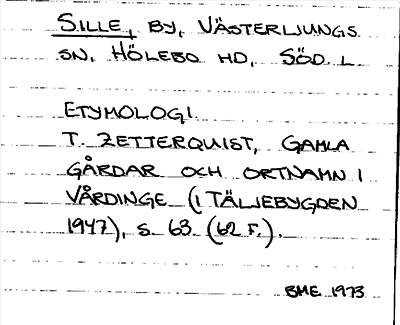 SILLE, BY, VÄSTERLJUNGS
SN, HÖLEBO HD, SÖD. L.
ETYMOLOGI.
T. ZETTERQUIST, GAMLA
GÅRDAR OCH ORTNAMN I
VÅRDINGE (I TÄLJEBYGDEN
1947), S. 63 (62 F.).
BME 1973